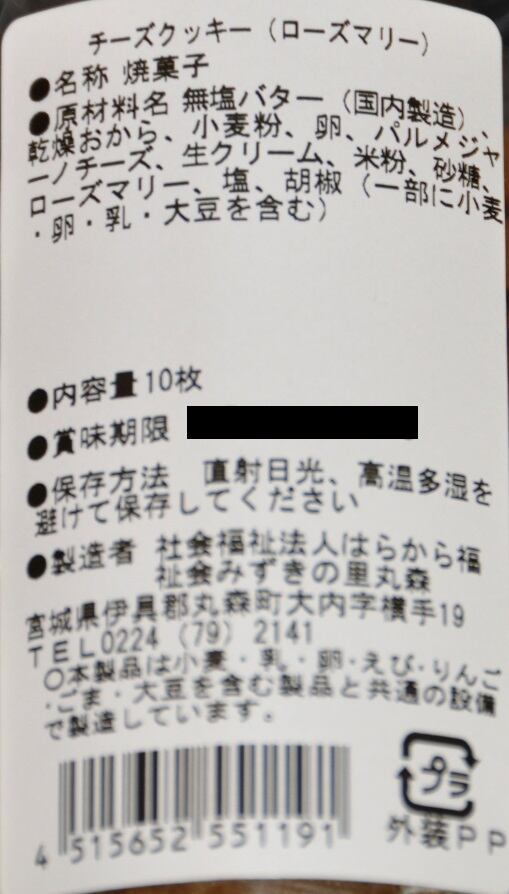 チーズクッキー（ローズマリー）
●名称 焼菓子
●原材料名 無塩バター（国内製造）、
乾燥おから、小麦粉、卵、パルメジャ
ーノチーズ、生クリーム、米粉、砂糖、
ローズマリー、塩、胡椒（一部に小麦
・卵・乳・大豆を含む）
●内容量 10枚
●賞味期限
●保存方法 直射日光、高温多湿を
避けて保存してください
●製造者 社会福祉法人はらから福
祉会みずきの里丸森
宮城県伊具郡丸森町大内字横手19
ＴＥＬ0224（79）2141
○本製品は小麦・乳・卵・えび・りんご
・ごま・大豆を含む製品と共通の設備
で製造しています。
プラ
外装ＰＰ
4 515652 551191